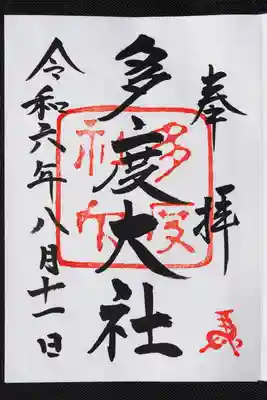 奉拝
多度大社
多度神社
令和六年八月十一日